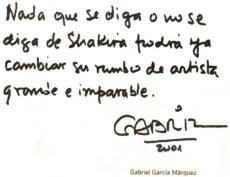 Nada que se diga o no se
diga de Shakira podrá ya
cambiar su rumbo de artista
grande e imparable.
GABRIEL
2001
Gabriel García Márquez